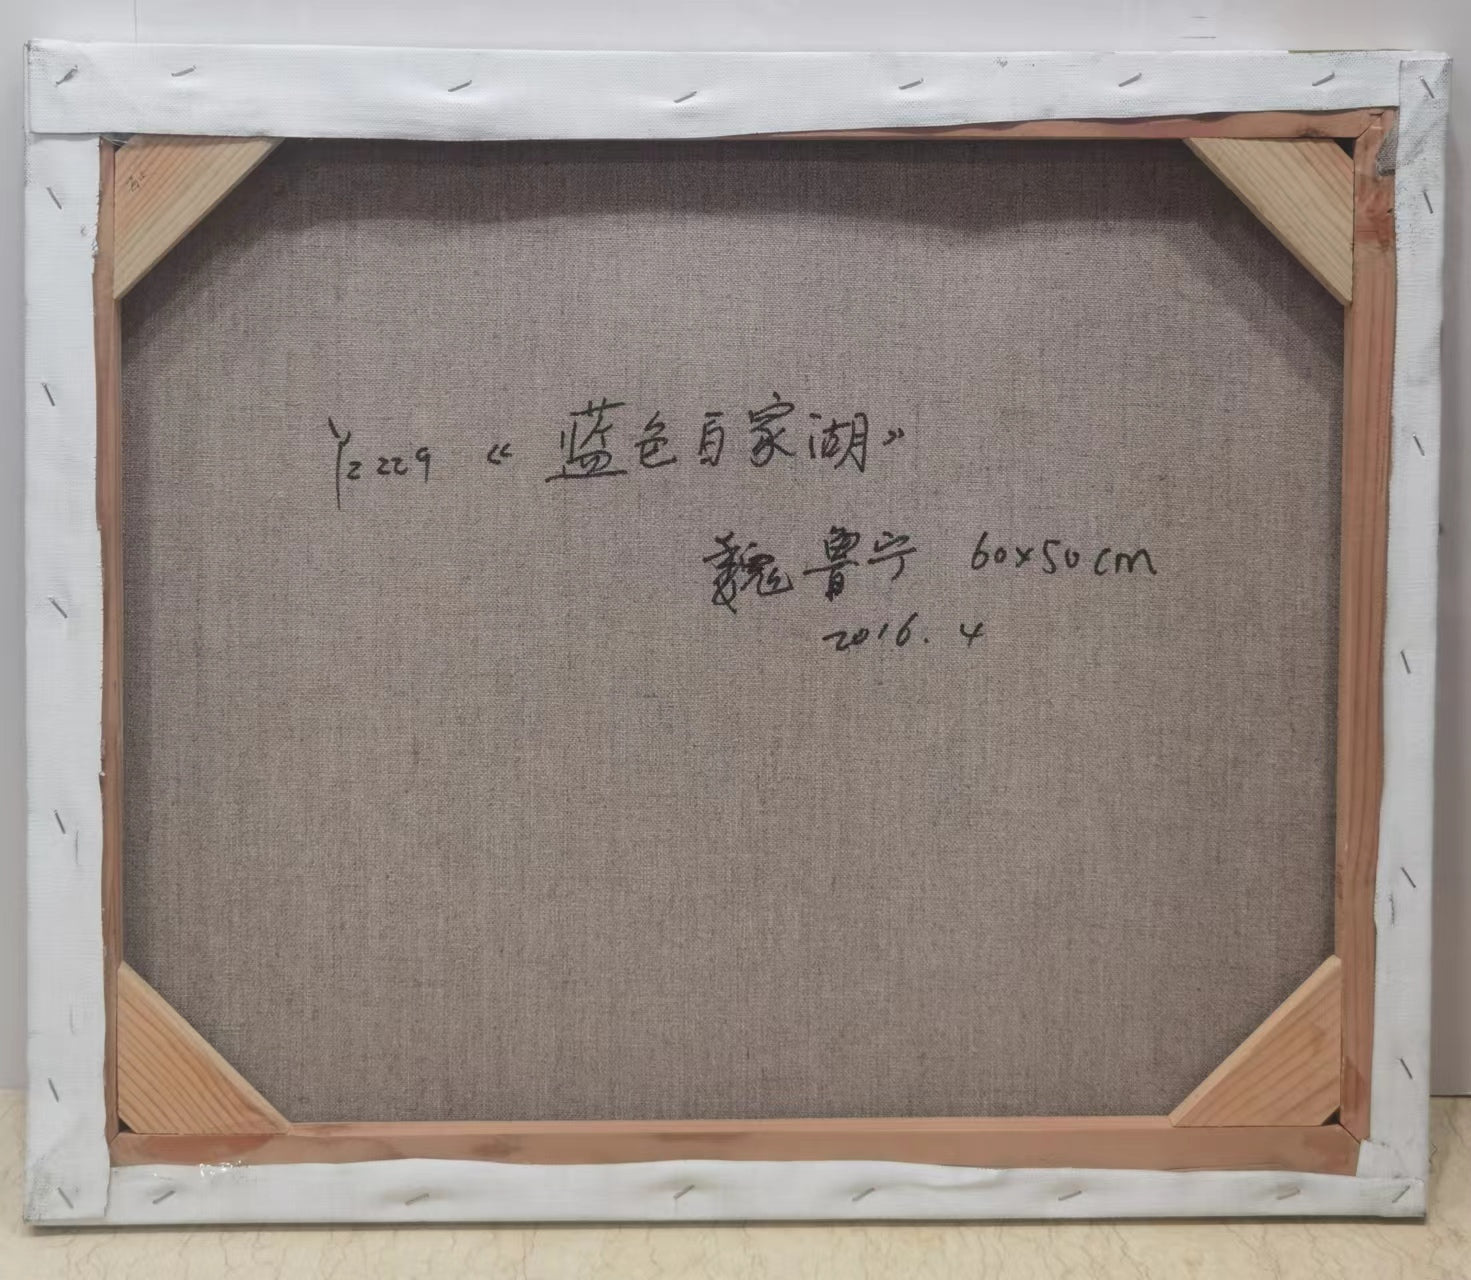 Y2229 《蓝色百家湖》
魏鲁宁 60x50cm
2016.4